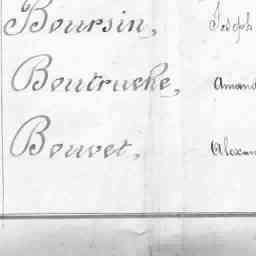 Boursin, Joseph
Boutruche, Amand
Bouvet, Alexan